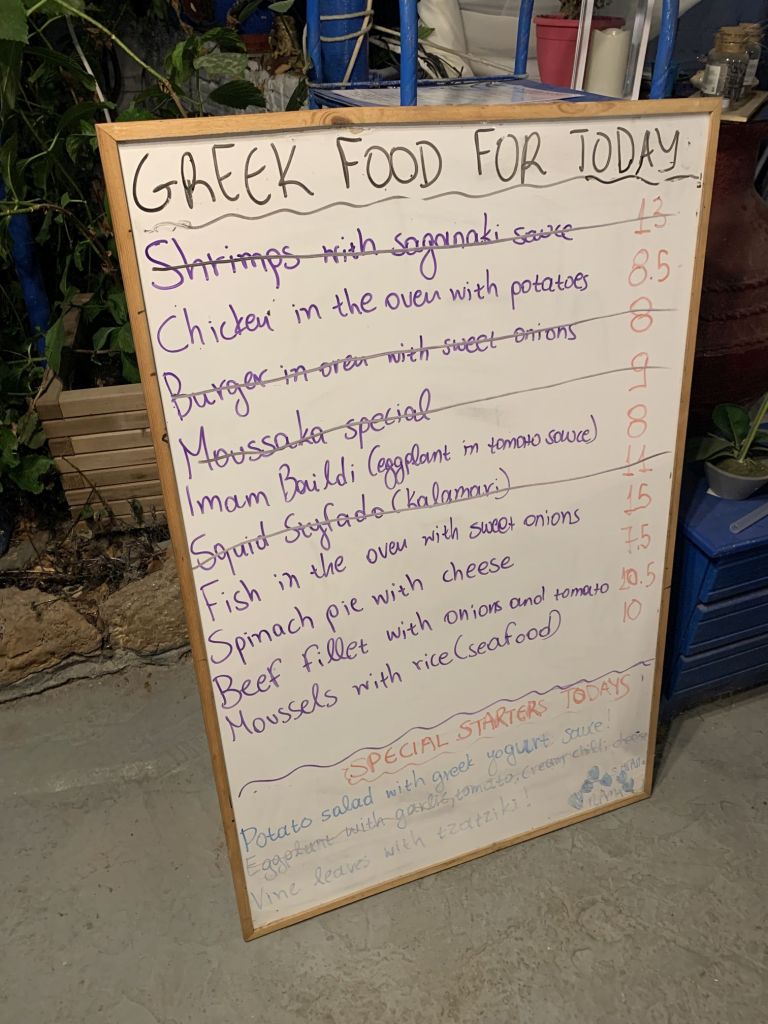 GREEK FOOD FOR TODAY
Shrimps with saganaki sauce 13
Chicken in the oven with potatoes 8.5
Burger in oven with sweet onions 8
Moussaka special 9
Imam Baildi (eggplant in tomato sauce) 8
Squid Styfado (Kalamari) 11
Fish in the oven with sweet onions 15
Spinach pie with cheese 7.5
Beef fillet with onions and tomato 10.5
Moussels with rice (seafood) 10
SPECIAL STARTERS TODAYS
Potato salad with greek yogurt sauce!
Eggplant with garlic, tomato, cream chilli, cheese
Vine leaves with tzatziki!